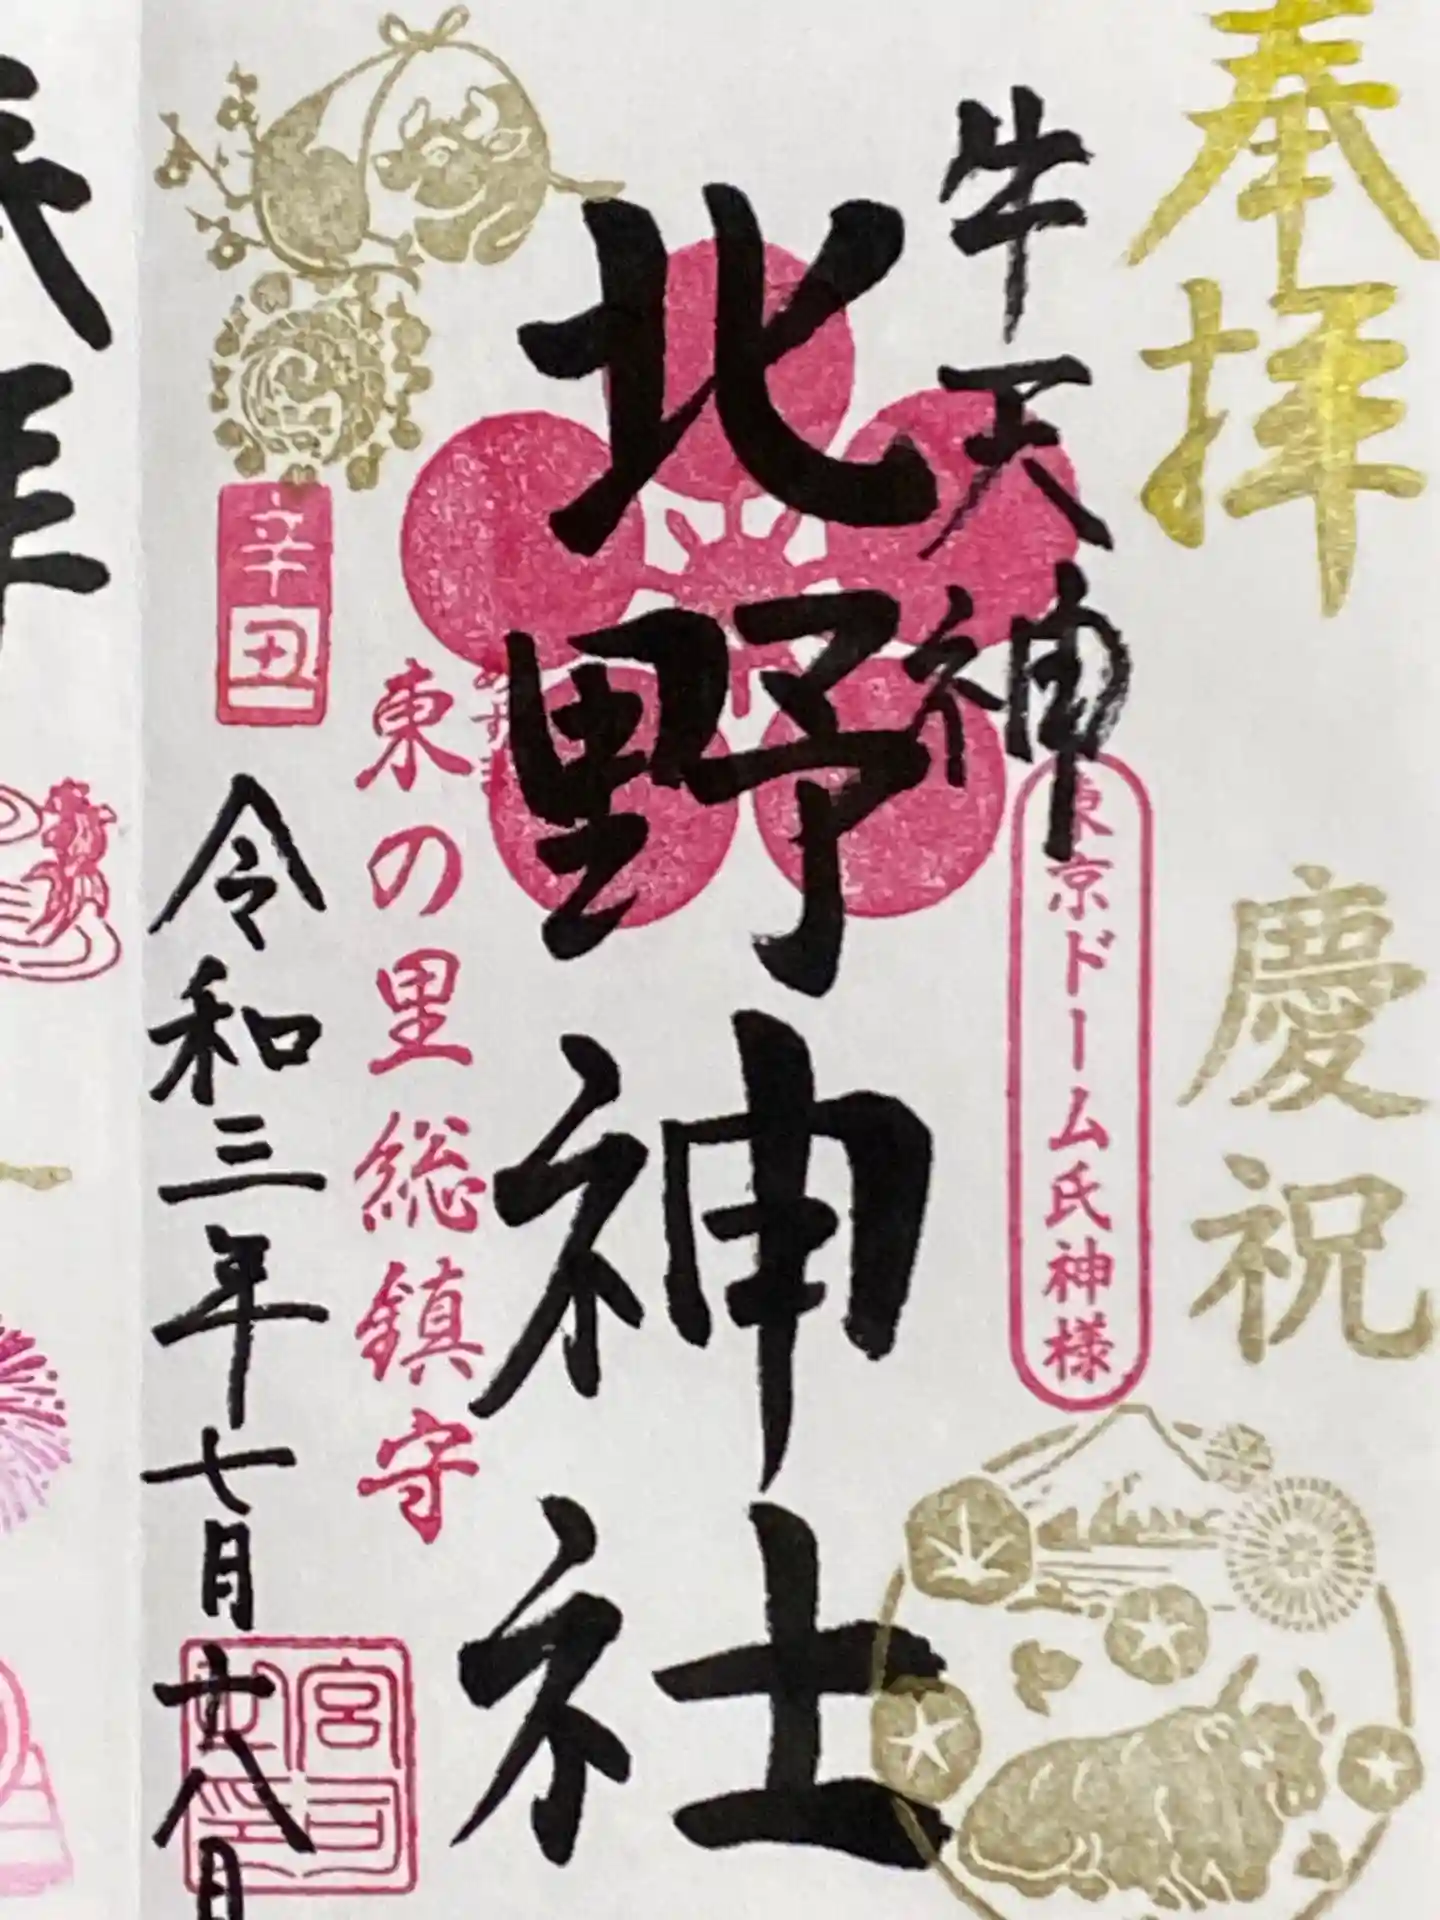 奉拝
慶祝
牛天神
東京ドーム氏神様
北野神社
東の里総鎮守
辛丑
令和三年七月廿八日
宮司之印
拝